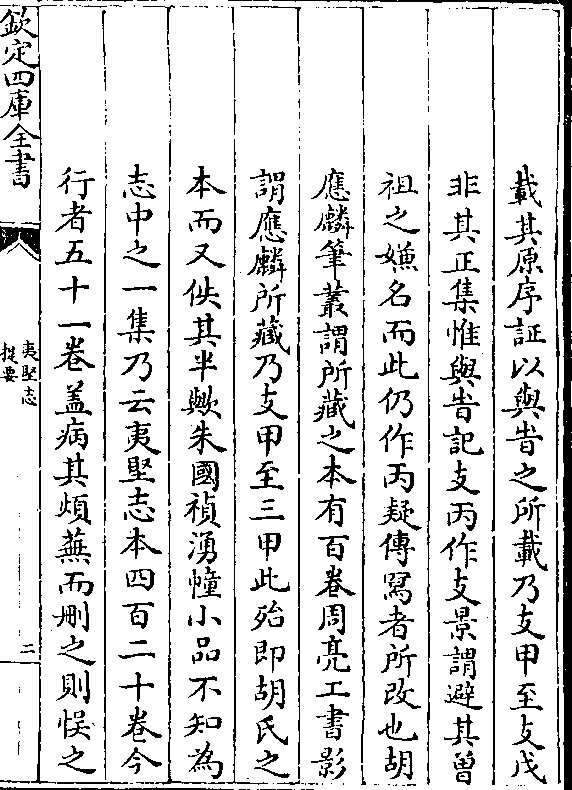 載其原序証以與旹之所載乃支甲至支戊
非其正集惟與旹記支丙作支景謂避其曾
祖之嫌名而此仍作丙疑傳冩者所改也胡
應麟筆叢謂所藏之本有百卷周亮工書影
謂應麟所藏乃支甲至三甲此殆即胡氏之
本而又佚其半歟朱國禎湧幢小品不知為
志中之一集乃云夷堅志本四百二十卷今
行者五十一卷盖病其煩蕪而刪之則悞之
欽定四庫全書
夷堅志
提要
二